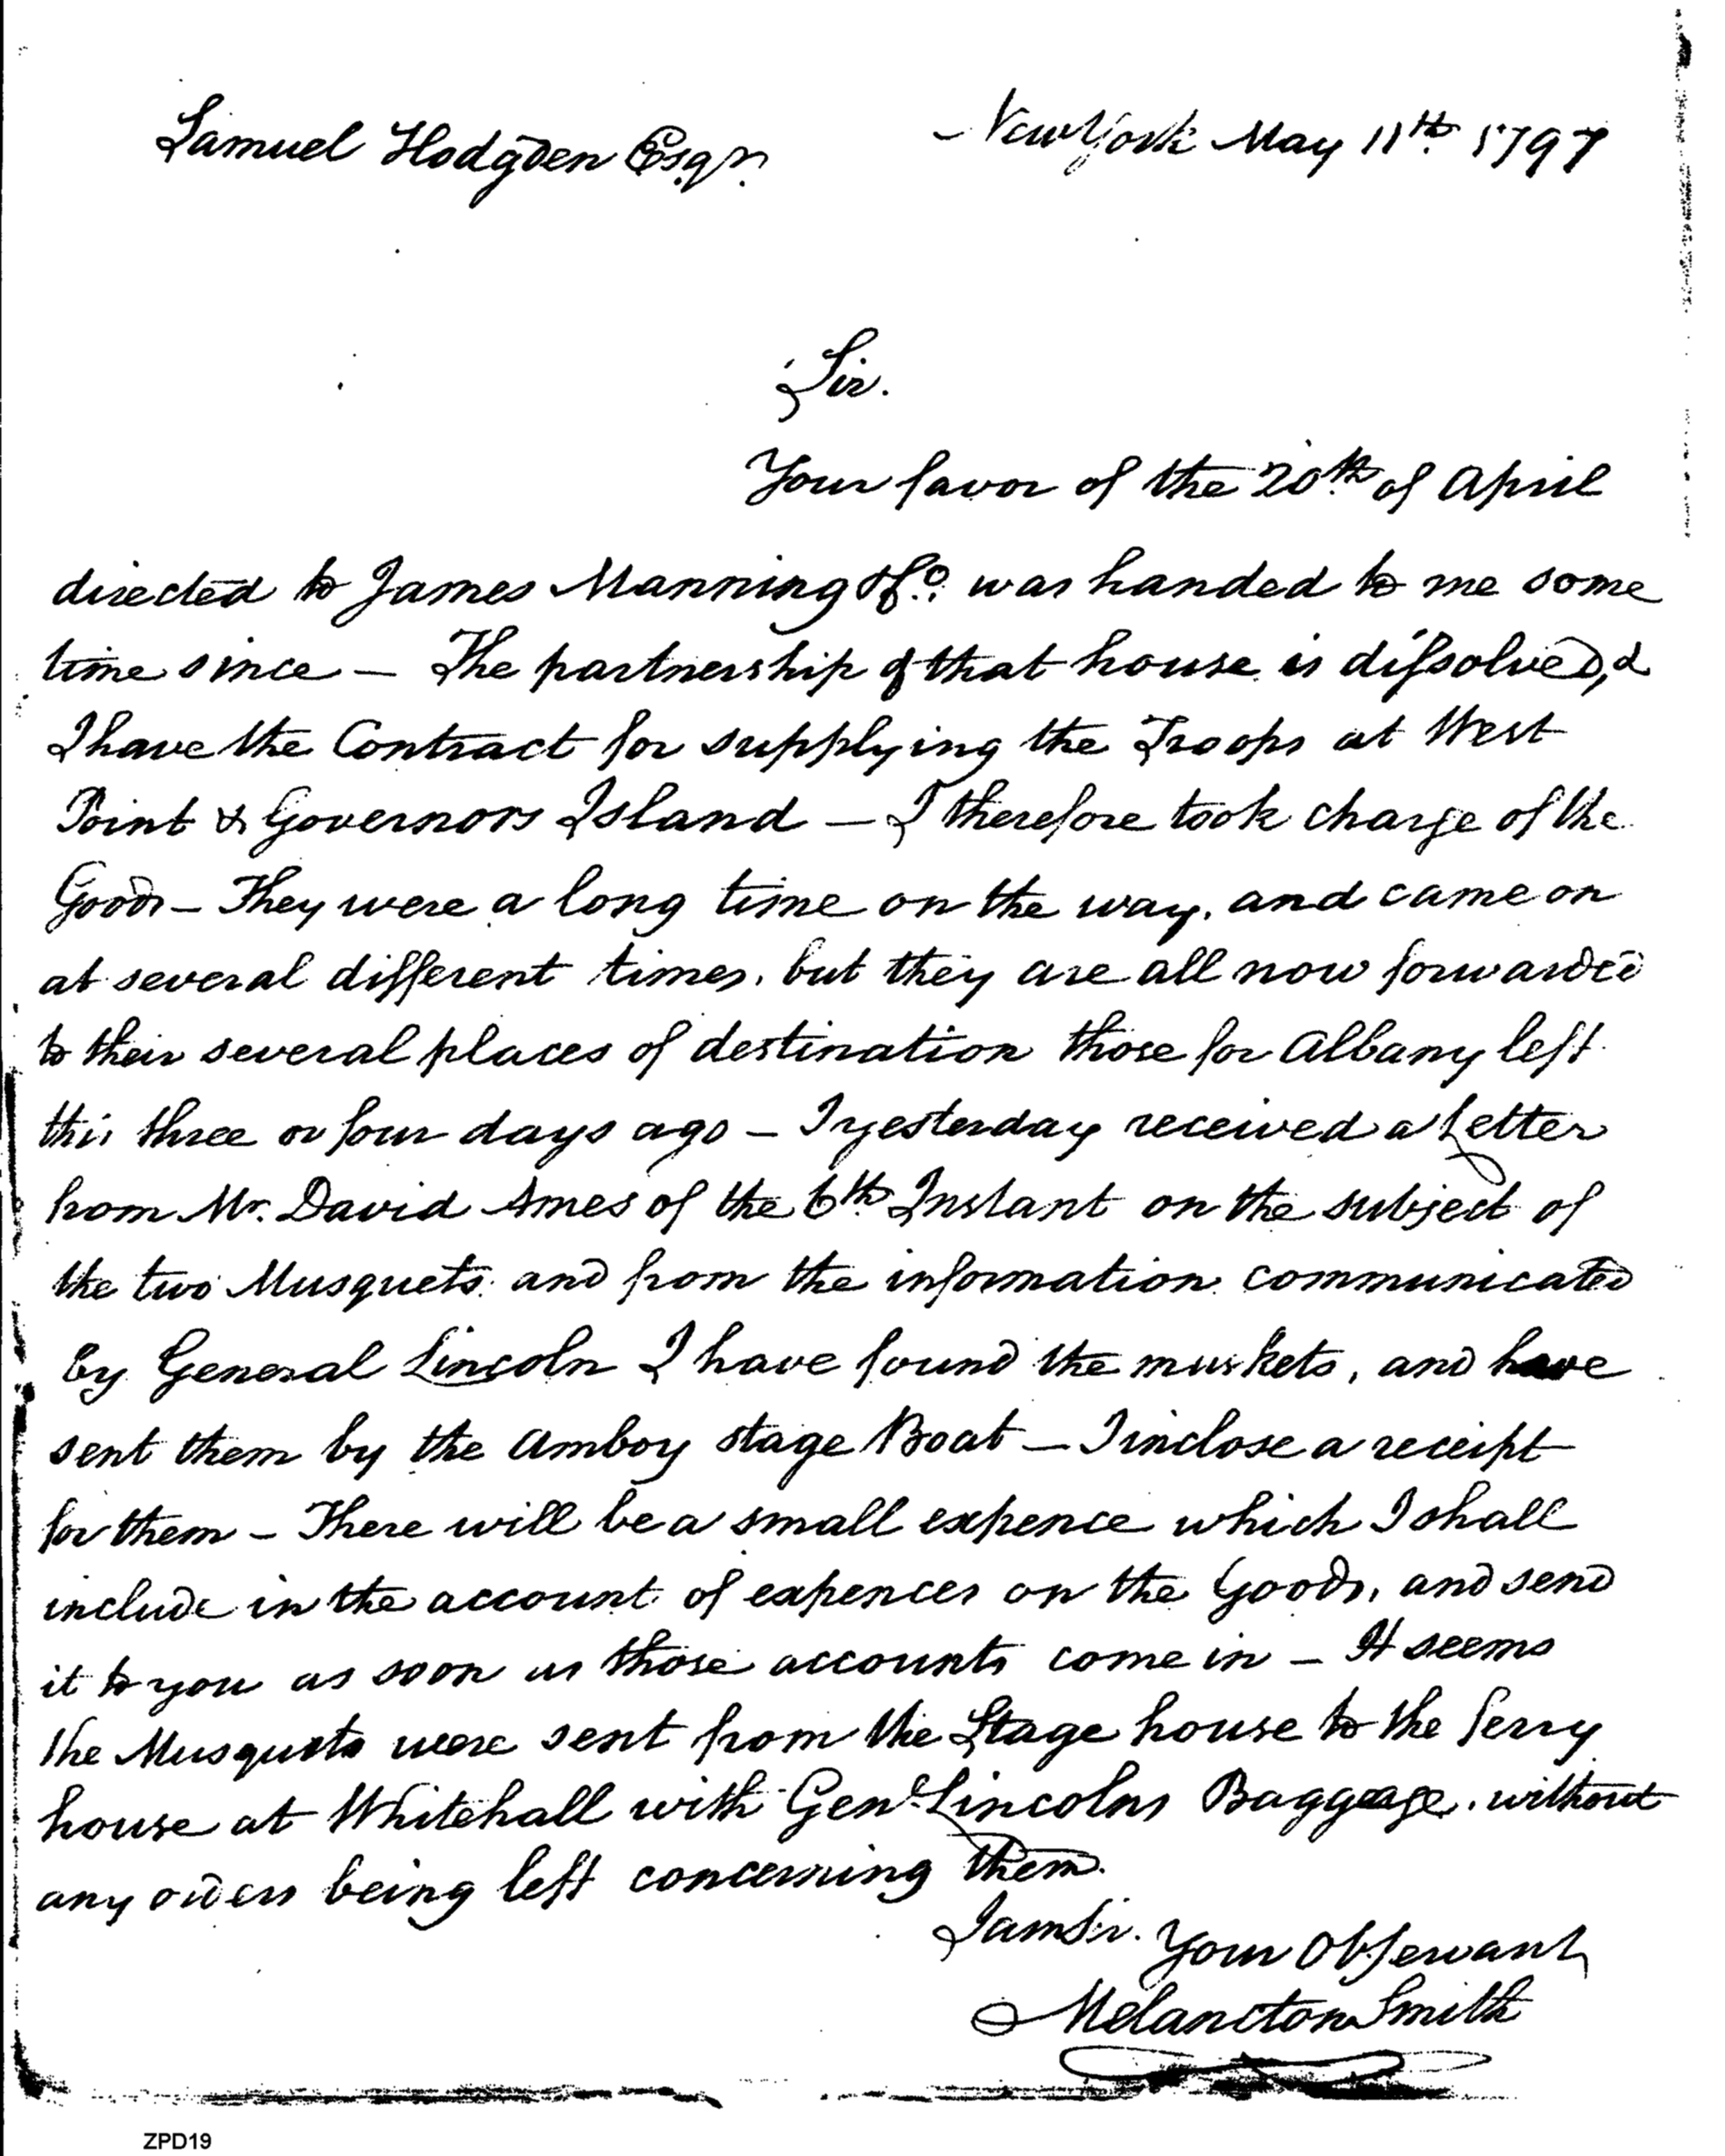 Samuel Hodgden Esqr. New York May 11th 1797
Sir.
Your favor of the 20th of April
directed to James Manning & Co. was handed to me some
time since — The partnership of that house is dissolved, &
I have the Contract for supplying the Troops at West
Point & Governors Island — I therefore took charge of the
Goods — They were a long time on the way, and came on
at several different times, but they are all now forwarded
to their several places of destination those for Albany left
this three or four days ago — I yesterday received a Letter
from Mr. David Ames of the 6th Instant on the subject of
the two Musquets and from the information communicated
by General Lincoln I have found the muskets, and have
sent them by the Amboy stage Boat — I inclose a receipt
for them — There will be a small expence which I shall
include in the account of expences on the Goods, and send
it to you as soon as those accounts come in — It seems
the Musquets were sent from the Stage house to the ferry
house at Whitehall with Genl Lincolns Baggage, without
any orders being left concerning them.
I am Sir. Your Ob Servant
Melancton Smith
ZPD19